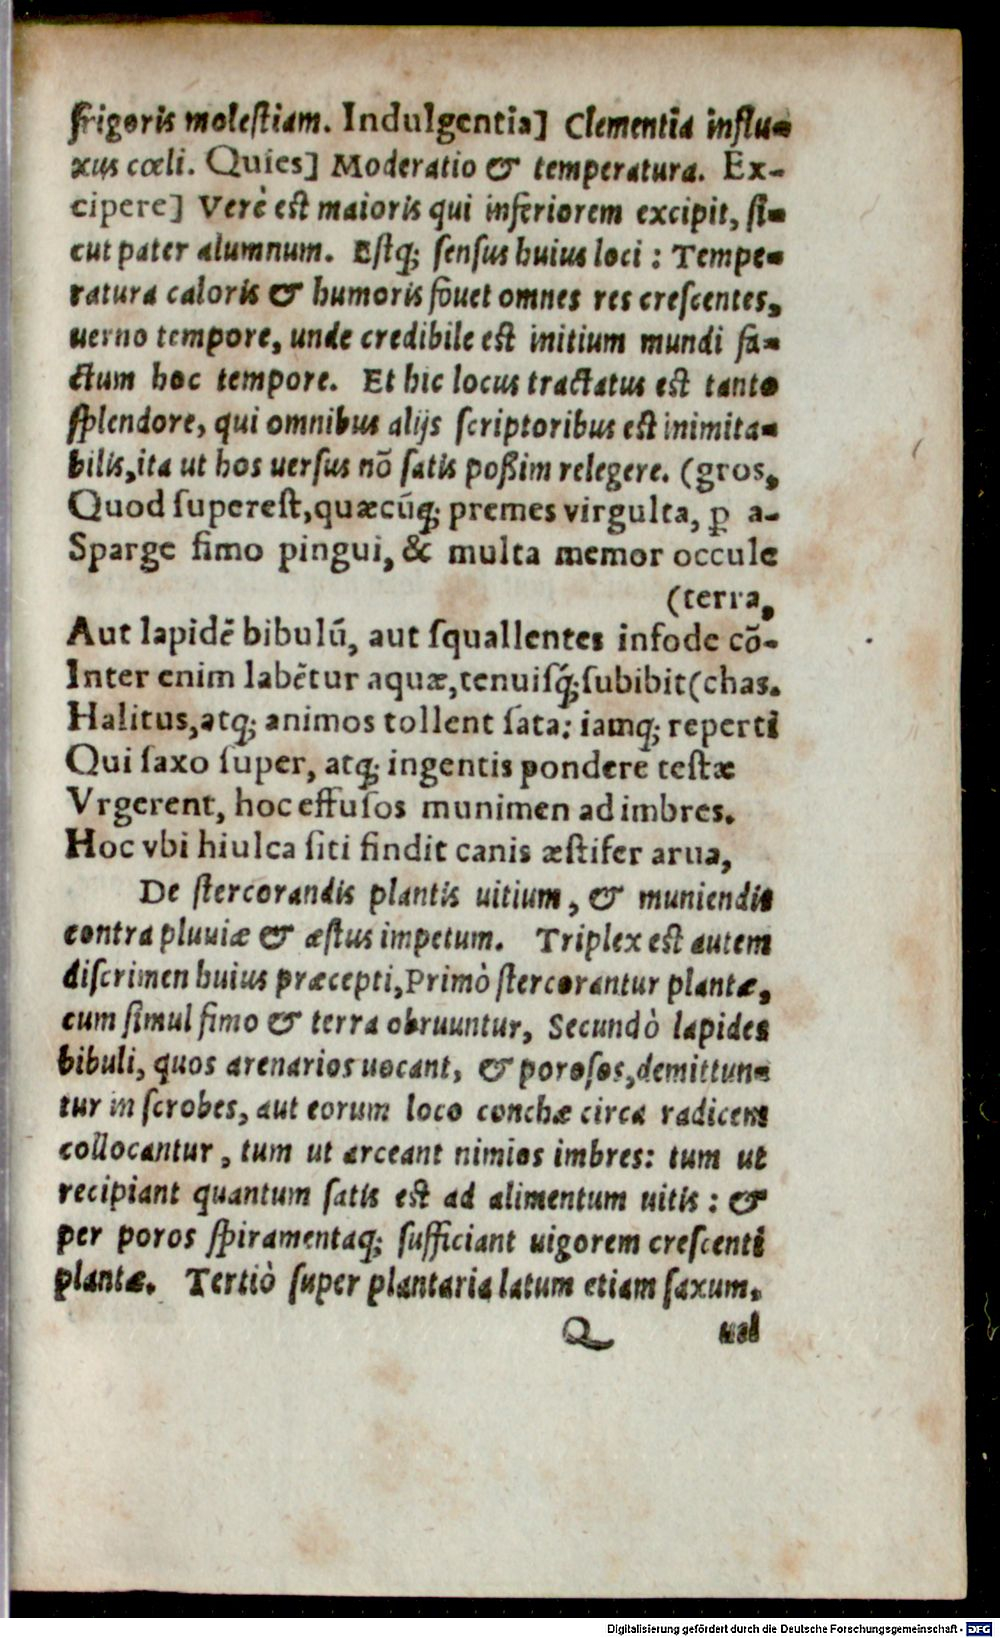 frigoris moleſtiam. Indulgentia] Clementia influ-
xus cœli. Quies] Moderatio & temperatura. Ex-
cipere] Verè eſt maioris qui inferiorem excipit, ſi-
cut pater alumnum. Eſtq; ſenſus huius loci : Tempe-
ratura caloris & humoris fouet omnes res creſcentes,
uerno tempore, unde credibile eſt initium mundi fa-
ctum hoc tempore. Et hic locus tractatus eſt tanto
ſplendore, qui omnibus alijs ſcriptoribus eſt inimita-
bilis, ita ut hos uerſus nõ ſatis poßim relegere. (gros,
Quod ſupereſt, quæcũq; premes virgulta, ꝑ a-
Sparge fimo pingui, & multa memor occule
(terra,
Aut lapidẽ bibulũ, aut ſquallentes infode cõ-
Inter enim labẽtur aquæ, tenuiſq́;ſubibit(chas.
Halitus, atq; animos tollent ſata: iamq; reperti
Qui ſaxo ſuper, atq; ingentis pondere teſtæ
Vrgerent, hoc effuſos munimen ad imbres.
Hoc vbi hiulca ſiti findit canis æſtifer arua,
De ſtercorandis plantis uitium, & muniendis
contra pluuiæ & æſtus impetum. Triplex eſt autem
diſcrimen huius præcepti, Primò ſtercorantur plantæ,
cum ſimul fimo & terra obruuntur, Secundò lapides
bibuli, quos arenarios uocant, & poroſos, demittun-
tur in ſcrobes, aut eorum loco conchæ circa radicem
collocantur, tum ut arceant nimios imbres: tum ut
recipiant quantum ſatis eſt ad alimentum uitis : &
per poros ſpiramentaq; ſufficiant uigorem creſcenti
plantæ. Tertiò ſuper plantaria latum etiam ſaxum,
Q uel
Digitalisierung gefördert durch die Deutsche Forschungsgemeinschaft - DFG